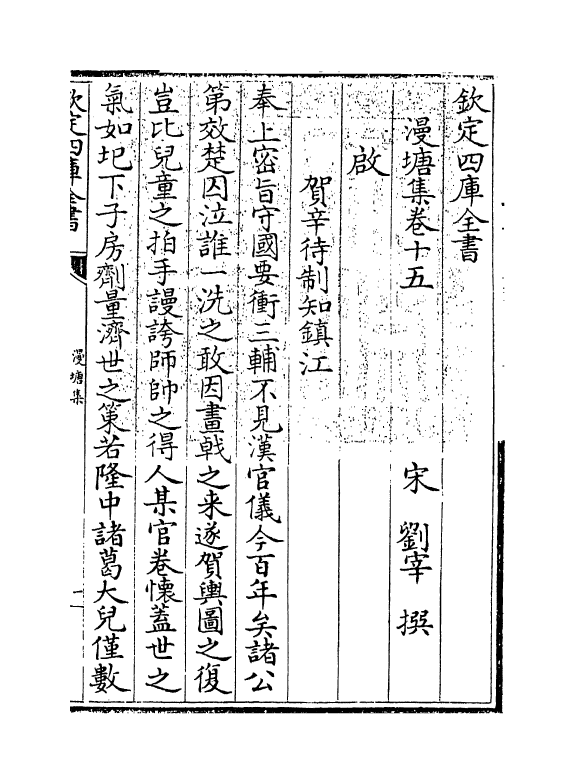 欽定四庫全書
漫塘集卷十五　宋　劉宰　撰
啟
賀辛待制知鎮江
奉上密旨守國要衝三輔不見漢官儀今百年矣諸公
第效楚囚泣誰一洗之敢因畫㦸之来遂賀輿圖之復
豈比兒童之拍手謾誇師帥之得人某官卷懷蓋世之
氣如圯下子房劑量濟世之策若隆中諸葛大兒僅數
欽定四庫全書
漫塘集
一